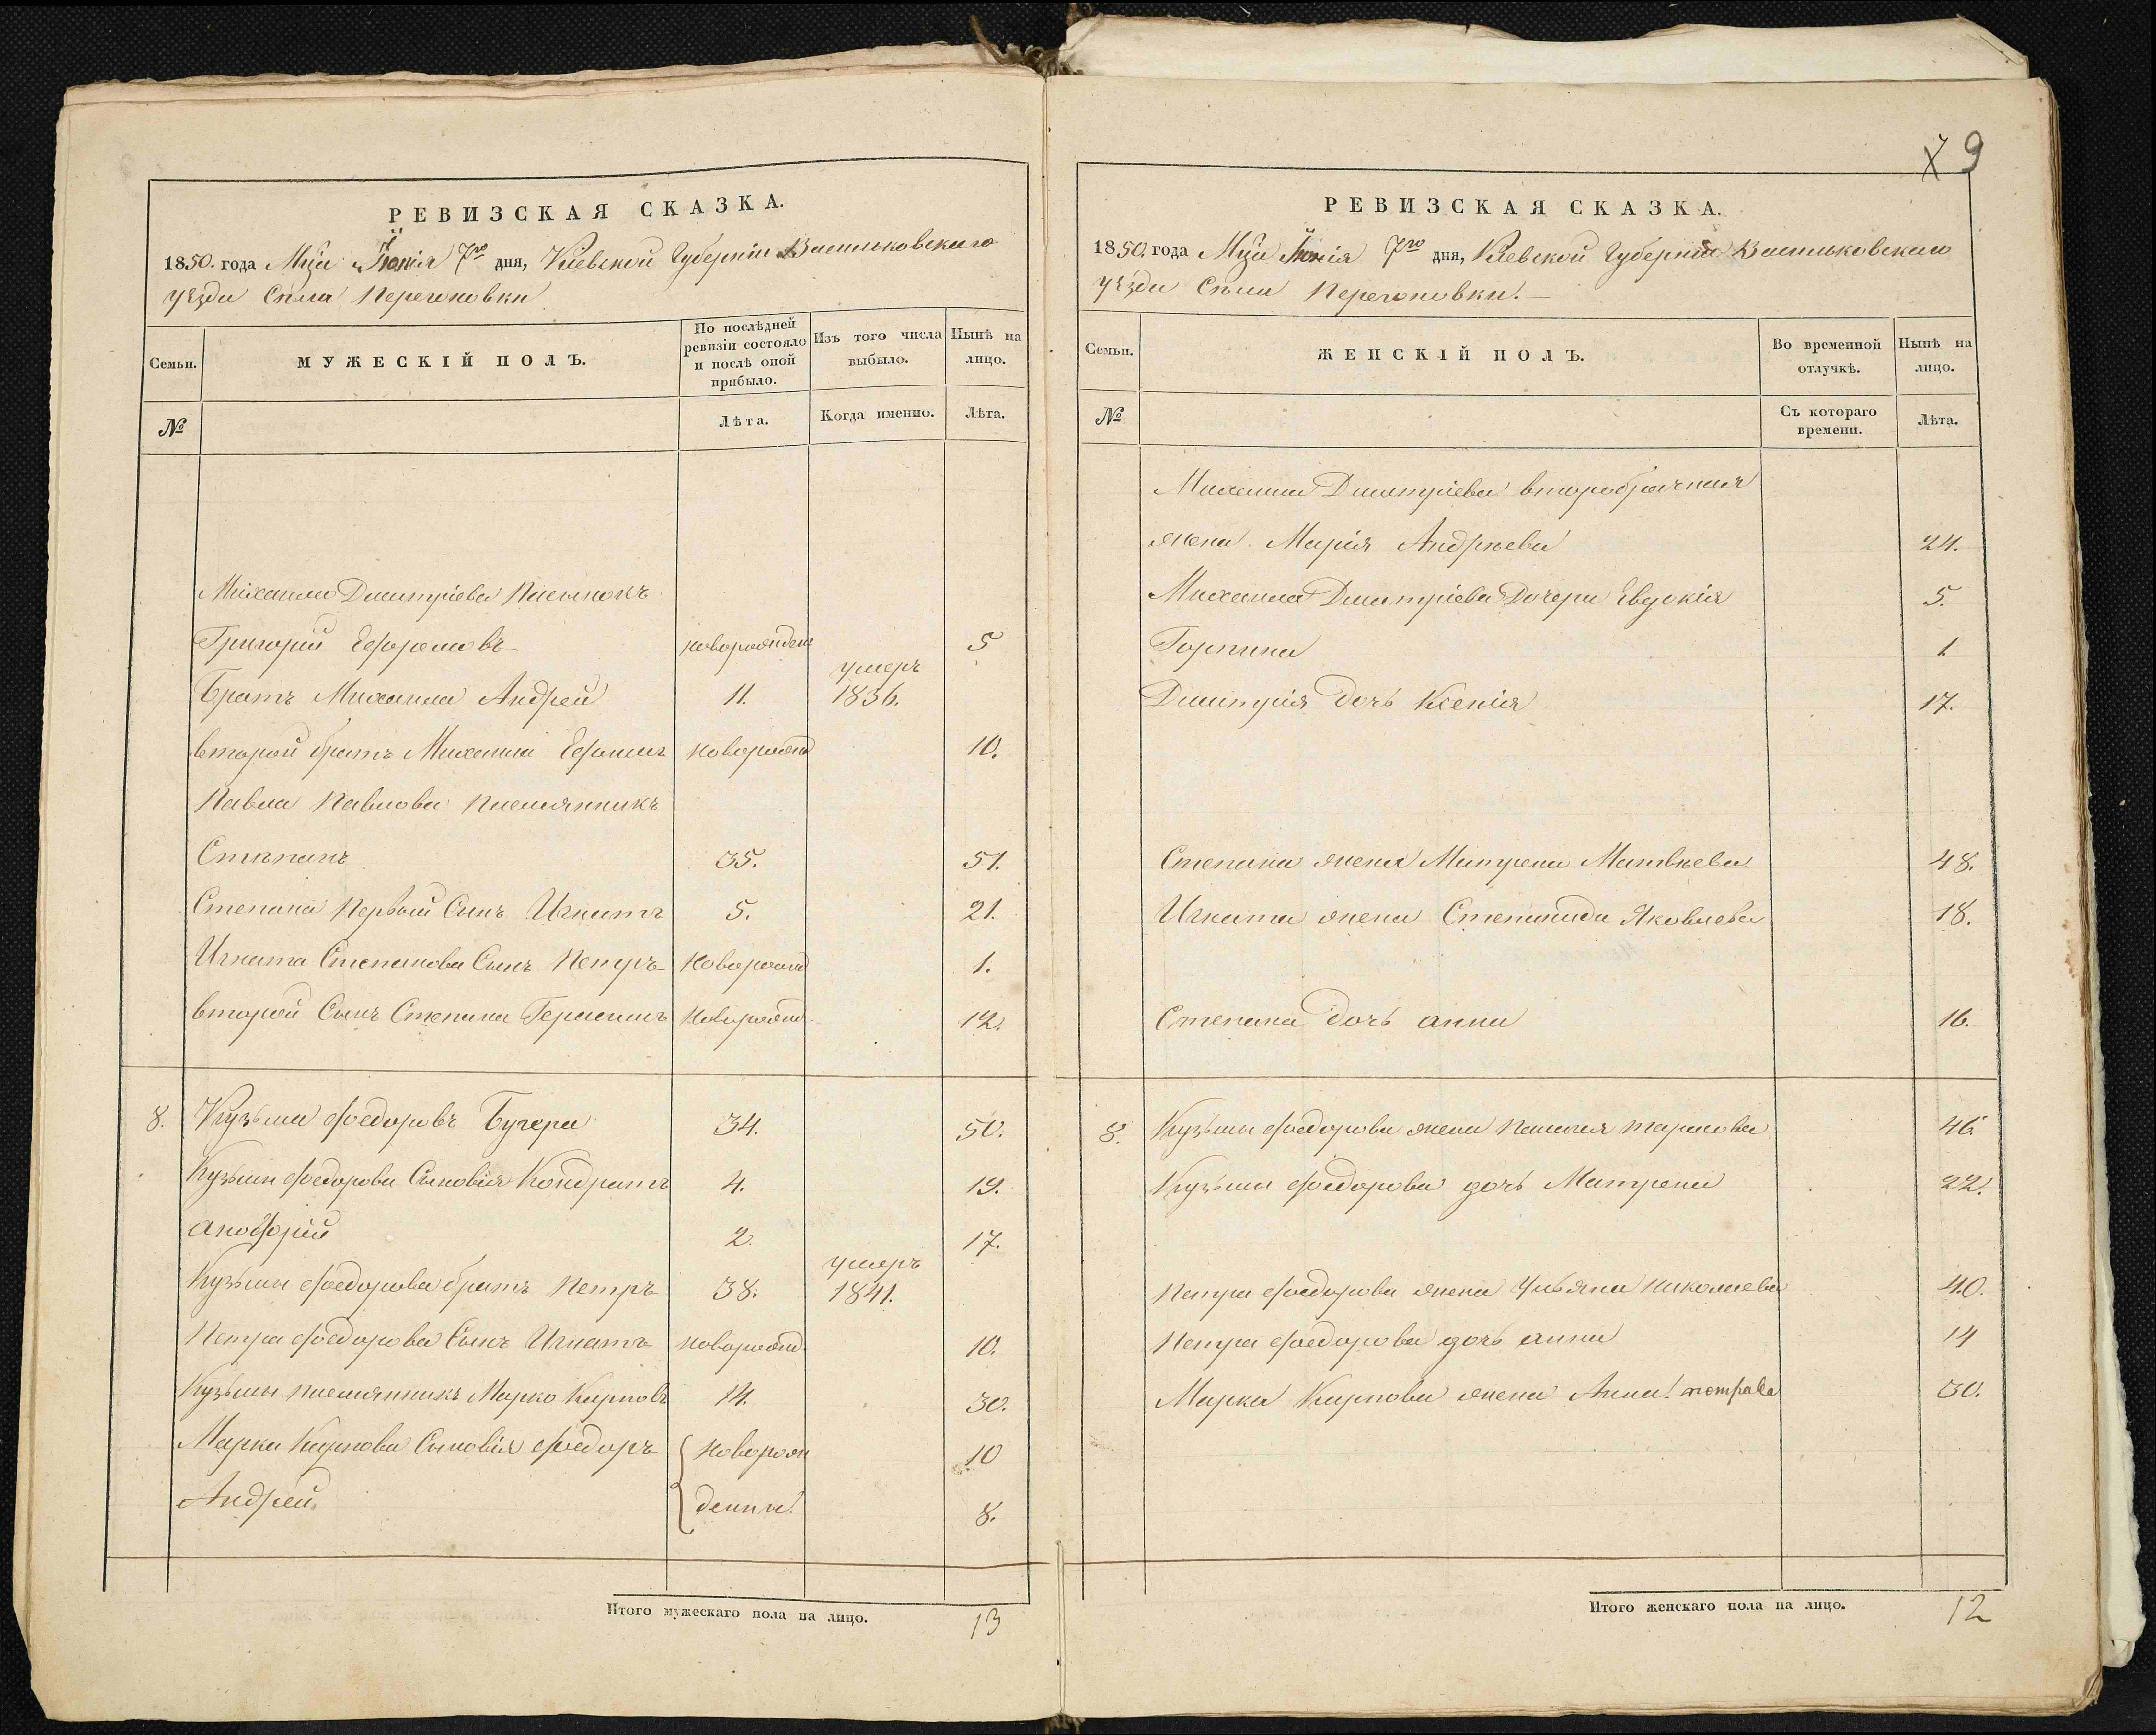 РЕВИЗСКАЯ СКАЗКА.
1850. года Мца Іюнія 7го дня, Кіевской Губерніи Васильковскаго
уѣзда Села Перегоновки
Семьи.
МУЖЕСКІЙ ПОЛЪ.
По послѣдней ревизіи состояло и послѣ оной прибыло.
Изъ того числа выбыло.
Нынѣ на лицо.
№
Лѣта.
Когда именно.
Лѣта.
Михаила Дмитріева Пасынокъ
Григорій новорожден 5
Братъ Михаила Андрей 11. умеръ 1836.
второй братъ Михаила Ефимъ новорожд 10.
Павла Павлова племянникъ
Степанъ 35. 51.
Степана Первый Сынъ Игнатъ 5. 21.
Игната Степанова Сынъ Петръ Новорожд 1.
второй Сынъ Степана Герасимъ Новорожд. 12.
8. Кузьма Федоровъ Бугера 34. 50.
Кузьмы Федорова Сыновія Кондратъ 4. 19.
Анофрій 2. 17.
Кузьмы Федорова братъ Петръ 38. умеръ 1841.
Петра Федорова Сынъ Игнатъ новорожд. 10.
Кузьмы племянникъ Марко Карповъ 14. 30.
Марка Карпова Сыновія Федоръ Новорож 10
Андрей денны 8.
Итого мужескаго пола на лицо. 13
7 9
РЕВИЗСКАЯ СКАЗКА.
1850. года Мца Іюнія 7го дня, Кіевской Губерніи Васильковскаго
уѣзда Села Перегоновки.
Семьи.
ЖЕНСКІЙ ПОЛЪ.
Во временной отлучкѣ.
Нынѣ на лицо.
№
Съ котораго времени.
Лѣта.
Михаила Дмитріева второбрачная
жена Марія Андрѣева 24.
Михаила Дмитріева Дочери Евдокія 5.
Горпина 1
Дмитрія дочь Ксенія 17.
Степана жена Матрена Матвѣева 48.
Игната жена Степанида Яковлева 18.
Степана дочь анна 16.
8. Кузьмы Федорова жена Пелагея Тарасова 46.
Кузьмы Федорова дочь Матрена 22.
Петра Федорова жена Ульяна Николаева 40.
Петра Федорова дочь анна 14
Марка Карпова жена Анна 30.
Итого женскаго пола на лицо. 12